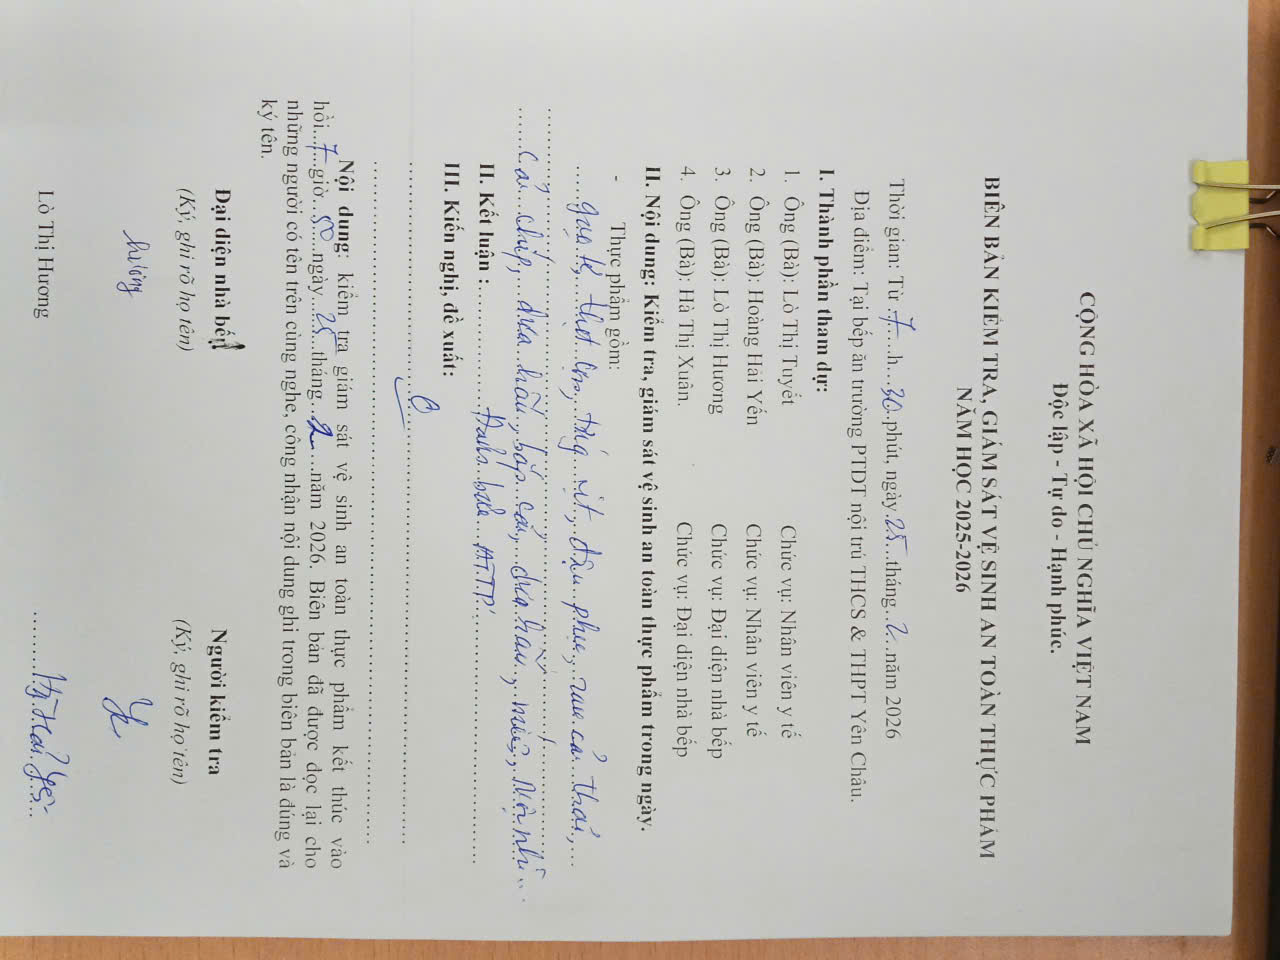 CỘNG HÒA XÃ HỘI CHỦ NGHĨA VIỆT NAM
Độc lập - Tự do - Hạnh phúc.
BIÊN BẢN KIỂM TRA, GIÁM SÁT VỆ SINH AN TOÀN THỰC PHẨM
NĂM HỌC 2025-2026
Thời gian: Từ 7 h 30 phút, ngày 25 tháng 2 năm 2026
Địa điểm: Tại bếp ăn trường PTDT nội trú THCS & THPT Yên Châu.
I. Thành phần tham dự:
1. Ông (Bà): Lò Thị Tuyết Chức vụ: Nhân viên y tế
2. Ông (Bà): Hoàng Hải Yến Chức vụ: Nhân viên y tế
3. Ông (Bà): Lò Thị Hương Chức vụ: Đại diện nhà bếp
4. Ông (Bà): Hà Thị Xuân. Chức vụ: Đại diện nhà bếp
II. Nội dung: Kiểm tra, giám sát vệ sinh an toàn thực phẩm trong ngày.
- Thực phẩm gồm:
gạo tẻ, thịt lợn, trứng vịt, đậu phụ, rau cải thảo,
bắp cải,
II. Kết luận : Đảm bảo ATTP.
III. Kiến nghị, đề xuất:
Nội dung: kiểm tra giám sát vệ sinh an toàn thực phẩm kết thúc vào
hồi 7 giờ 50 ngày 25 tháng 2 năm 2026. Biên bản đã được đọc lại cho
những người có tên trên cùng nghe, công nhận nội dung ghi trong biên bản là đúng và
ký tên.
Đại diện nhà bếp Người kiểm tra
(Ký, ghi rõ họ tên) (Ký, ghi rõ họ tên)
Hương
Lò Thị Hương Hg Hải Yến